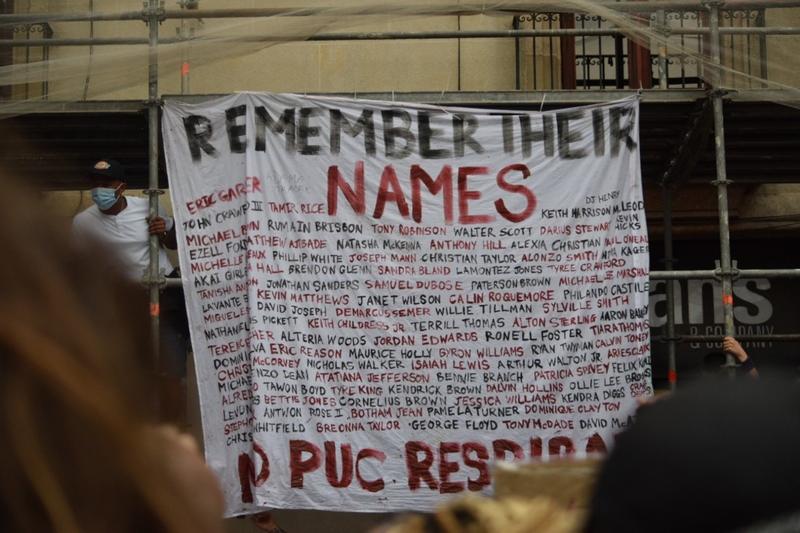 REMEMBER THEIR
NAMES
DJ HENRY
ERIC GARNER
JOHN CRAWFORD III TAMIR RICE KEITH HARRISON MCLEOD
MICHAEL RUMAIN BRISBON TONY ROBINSON WALTER SCOTT DARIUS STEWART KEVIN HICKS
EZELL FORD MATTHEW AJIBADE NATASHA MCKENNA ANTHONY HILL ALEXIA CHRISTIAN PAUL O'NEAL
MICHELLE PHILLIP WHITE JOSEPH MANN CHRISTIAN TAYLOR ALONZO SMITH KAGER
AKAI GURLEY HALL BRENDON GLENN SANDRA BLAND LAMONTEZ JONES TYREE CRAWFORD
TANISHA JONATHAN SANDERS SAMUEL DUBOSE PATERSON BROWN MICHAEL MARSHALL
LAVANTE KEVIN MATTHEWS JANET WILSON CALIN ROQUEMORE PHILANDO CASTILE
MIGUEL DAVID JOSEPH DEMARCUS SEMER WILLIE TILLMAN SYLVILLE SMITH
NATHANIEL PICKETT KEITH CHILDRESS JR TERRILL THOMAS ALTON STERLING AARON BAILEY
ALTERIA WOODS JORDAN EDWARDS RONELL FOSTER TIARA THOMAS
TERENCE ERIC REASON MAURICE HOLLY GYRON WILLIAMS RYAN TWYMAN CALVIN TONEY
DOMINIC MCCORVEY NICHOLAS WALKER ISAIAH LEWIS ARTHUR WALTON JR
DEAN ATATIANA JEFFERSON BENNIE BRANCH PATRICIA SPIVEY FELIX
MICHAEL TAWON BOYD TYRE KING KENDRICK BROWN CALVIN HOLLINS OLLIE LEE BROOKS
ALFRED BETTIE JONES CORNELIUS BROWN JESSICA WILLIAMS KENDRA DIGGS
ANTWON ROSE II BOTHAM JEAN PAMELA TURNER DOMINIQUE CLAYTON
CHRIS WHITFIELD BREONNA TAYLOR GEORGE FLOYD TONY MCDADE DAVID
NO PUC RESPIRAR
ans
& COMPANY